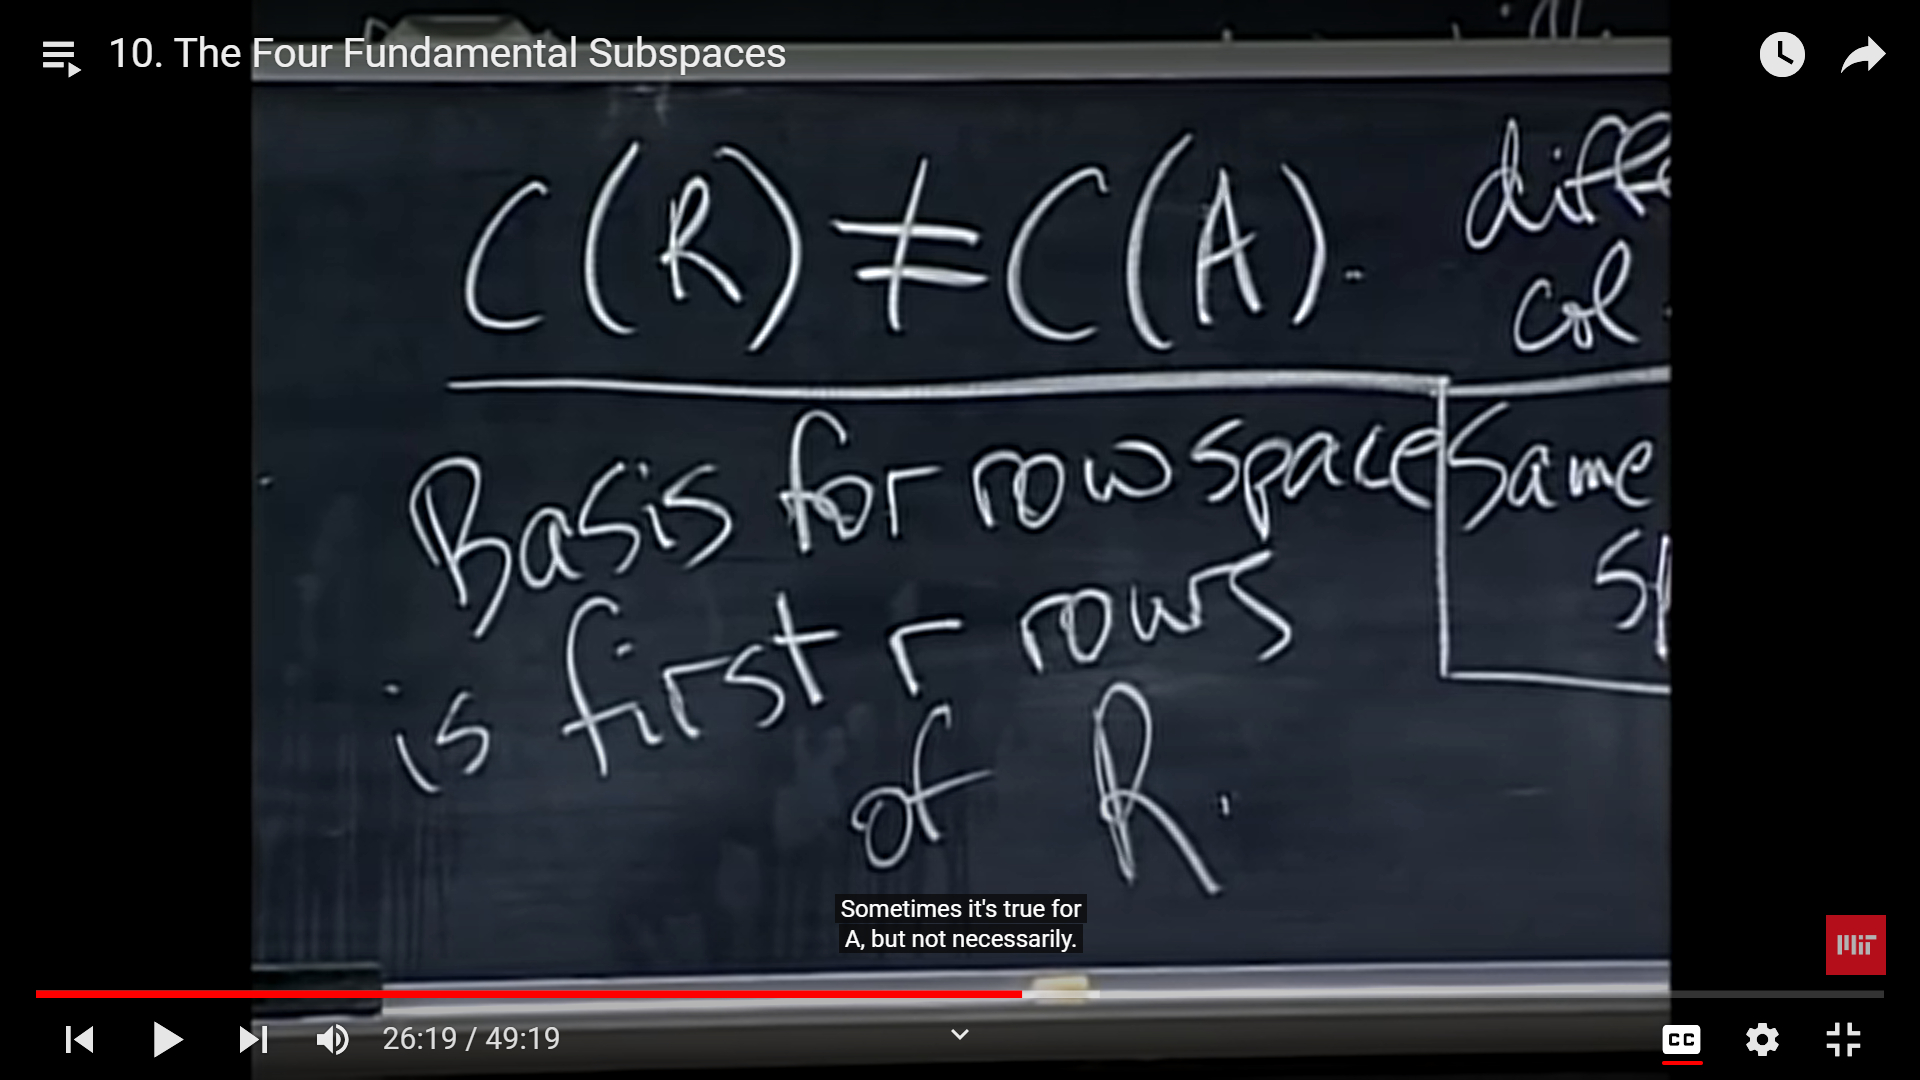 10. The Four Fundamental Subspaces
C(R) ≠ C(A).
col
Basis for row space
Same
is first r rows
of R.
Sometimes it's true for
A, but not necessarily.
MIT
26:19 / 49:19
CC